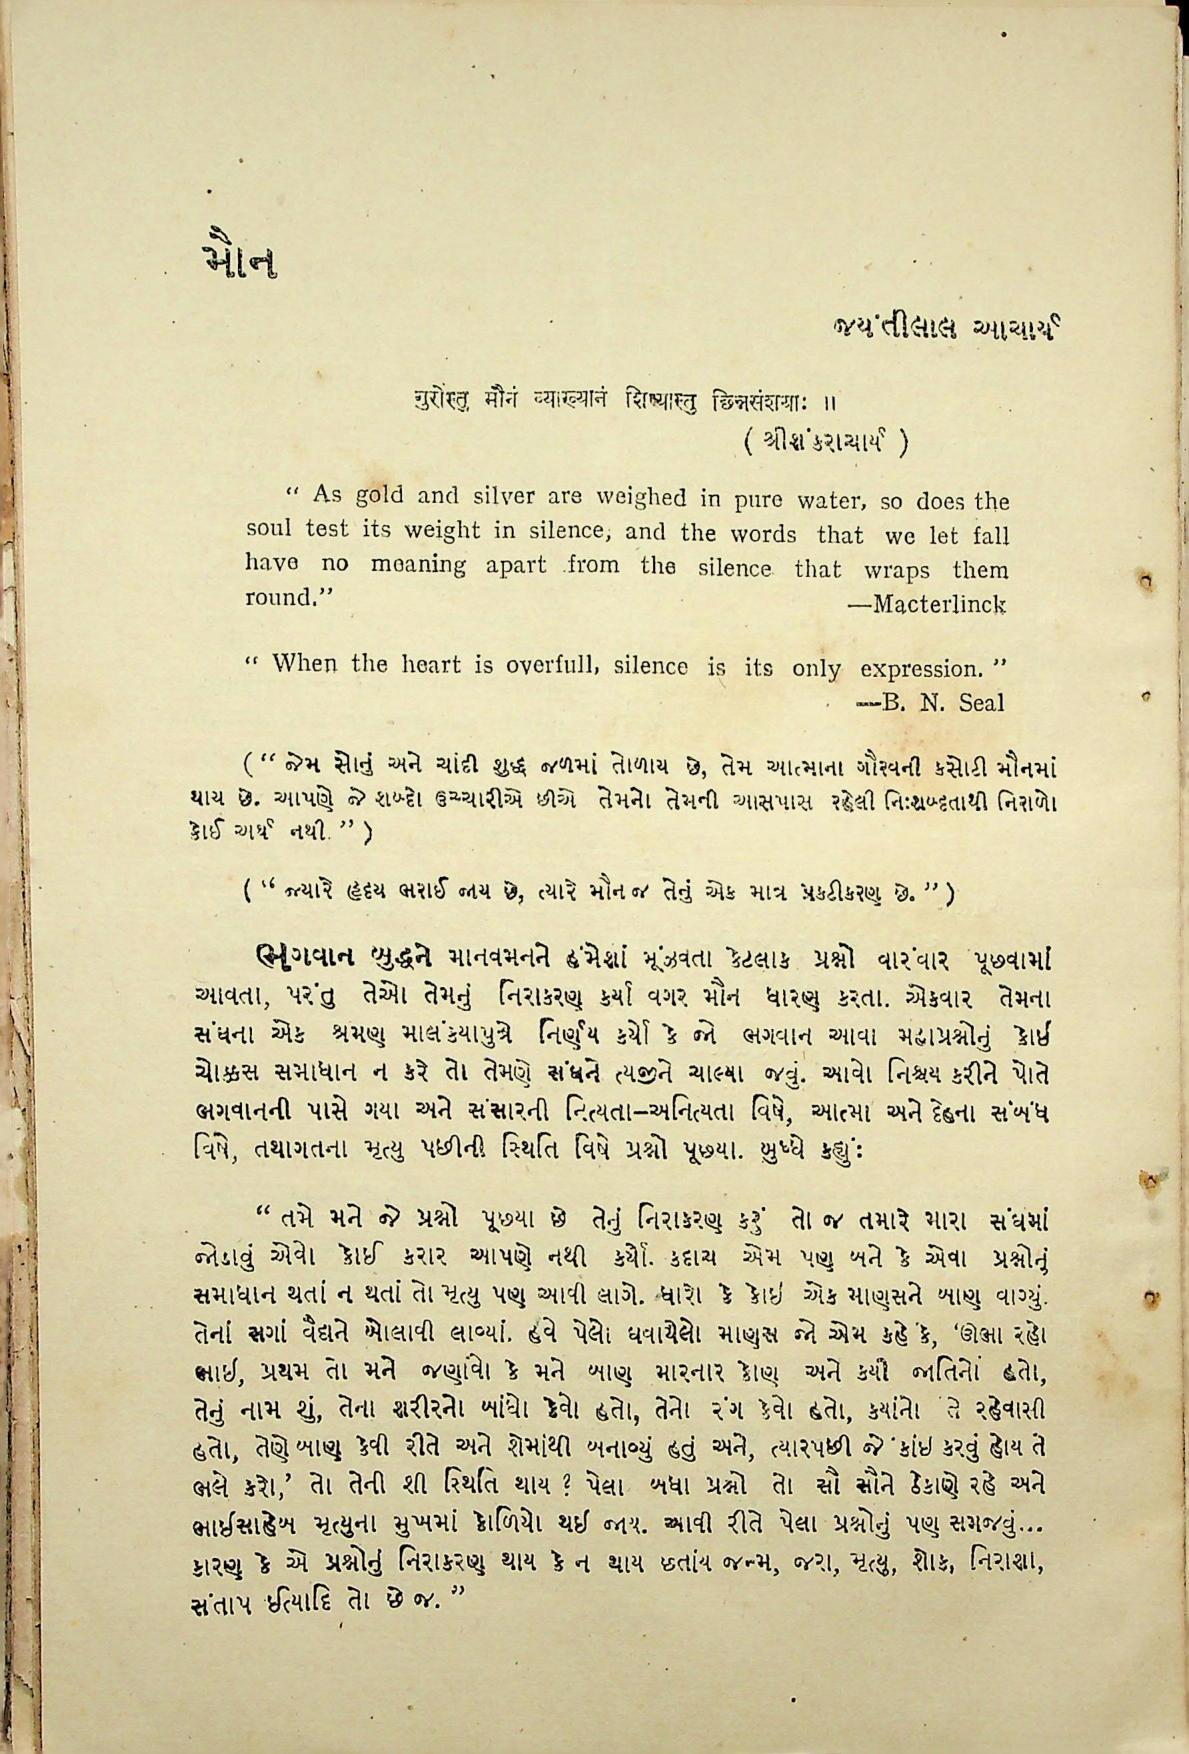 મૌન
જયંતીલાલ આચાર્ય
गुरोस्तु मौनं व्याख्यानं शिष्यास्तु छिन्नसंशयाः ॥
( શ્રીશંકરાચાર્ય )
“ As gold and silver are weighed in pure water, so does the
soul test its weight in silence, and the words that we let fall
have no meaning apart from the silence that wraps them
round.” —Macterlinck
“ When the heart is overfull, silence is its only expression. ”
—B. N. Seal
(“ જેમ સોનું અને ચાંદી શુદ્ધ જળમાં તોળાય છે, તેમ આત્માના ગૌરવની કસોટી મૌનમાં
થાય છે. આપણે જે શબ્દો ઉચ્ચારીએ છીએ તેમનો તેમની આસપાસ રહેલી નિઃશબ્દતાથી નિરાળો
કોઈ અર્થ નથી. ” )
( “ જ્યારે હૃદય ભરાઈ જાય છે, ત્યારે મૌન જ તેનું એક માત્ર પ્રકટીકરણ છે. ” )
ભગવાન બુદ્ધને માનવમનને હંમેશાં મૂંઝવતા કેટલાક પ્રશ્નો વારંવાર પૂછવામાં
આવતા, પરંતુ તેઓ તેમનું નિરાકરણ કર્યા વગર મૌન ધારણ કરતા. એકવાર તેમના
સંઘના એક શ્રમણ માલંકયાપુત્રે નિર્ણય કર્યો કે જો ભગવાન આવા મહાપ્રશ્નોનું કોઈ
ચોક્કસ સમાધાન ન કરે તો તેમણે સંઘને ત્યજીને ચાલ્યા જવું. આવો નિશ્ચય કરીને પોતે
ભગવાનની પાસે ગયા અને સંસારની નિત્યતા–અનિત્યતા વિષે, આત્મા અને દેહના સંબંધ
વિષે, તથાગતના મૃત્યુ પછીની સ્થિતિ વિષે પ્રશ્નો પૂછ્યા. બુધ્ધે કહ્યું:
“ તમે મને જે પ્રશ્નો પૂછ્યા છે તેનું નિરાકરણ કરું તો જ તમારે મારા સંઘમાં
જોડાવું એવો કોઈ કરાર આપણે નથી કર્યો. કદાચ એમ પણ બને કે એવા પ્રશ્નોનું
સમાધાન થતાં ન થતાં તો મૃત્યુ પણ આવી લાગે. ધારો કે કોઇ એક માણસને બાણ વાગ્યું.
તેનાં સગાં વૈદ્યને બોલાવી લાવ્યાં. હવે પેલો ઘવાયેલો માણસ જો એમ કહે કે, ‘ઊભા રહો
ભાઇ, પ્રથમ તો મને જણાવો કે મને બાણ મારનાર કોણ અને કયી જાતિનો હતો,
તેનું નામ શું, તેના શરીરનો બાંધો કેવો હતો, તેનો રંગ કેવો હતો, કયાંનો તે રહેવાસી
હતો, તેણે બાણ કેવી રીતે અને શેમાંથી બનાવ્યું હતું અને, ત્યારપછી જે કાંઇ કરવું હોય તે
ભલે કરો,’ તો તેની શી સ્થિતિ થાય ? પેલા બધા પ્રશ્નો તો સૌ સૌને ઠેકાણે રહે અને
ભાઇસાહેબ મૃત્યુના મુખમાં કોળિયો થઇ જાય. આવી રીતે પેલા પ્રશ્નોનું પણ સમજવું...
કારણ કે એ પ્રશ્નોનું નિરાકરણ થાય કે ન થાય છતાંય જન્મ, જરા, મૃત્યુ, શોક, નિરાશા,
સંતાપ ઈત્યાદિ તો છે જ. ”